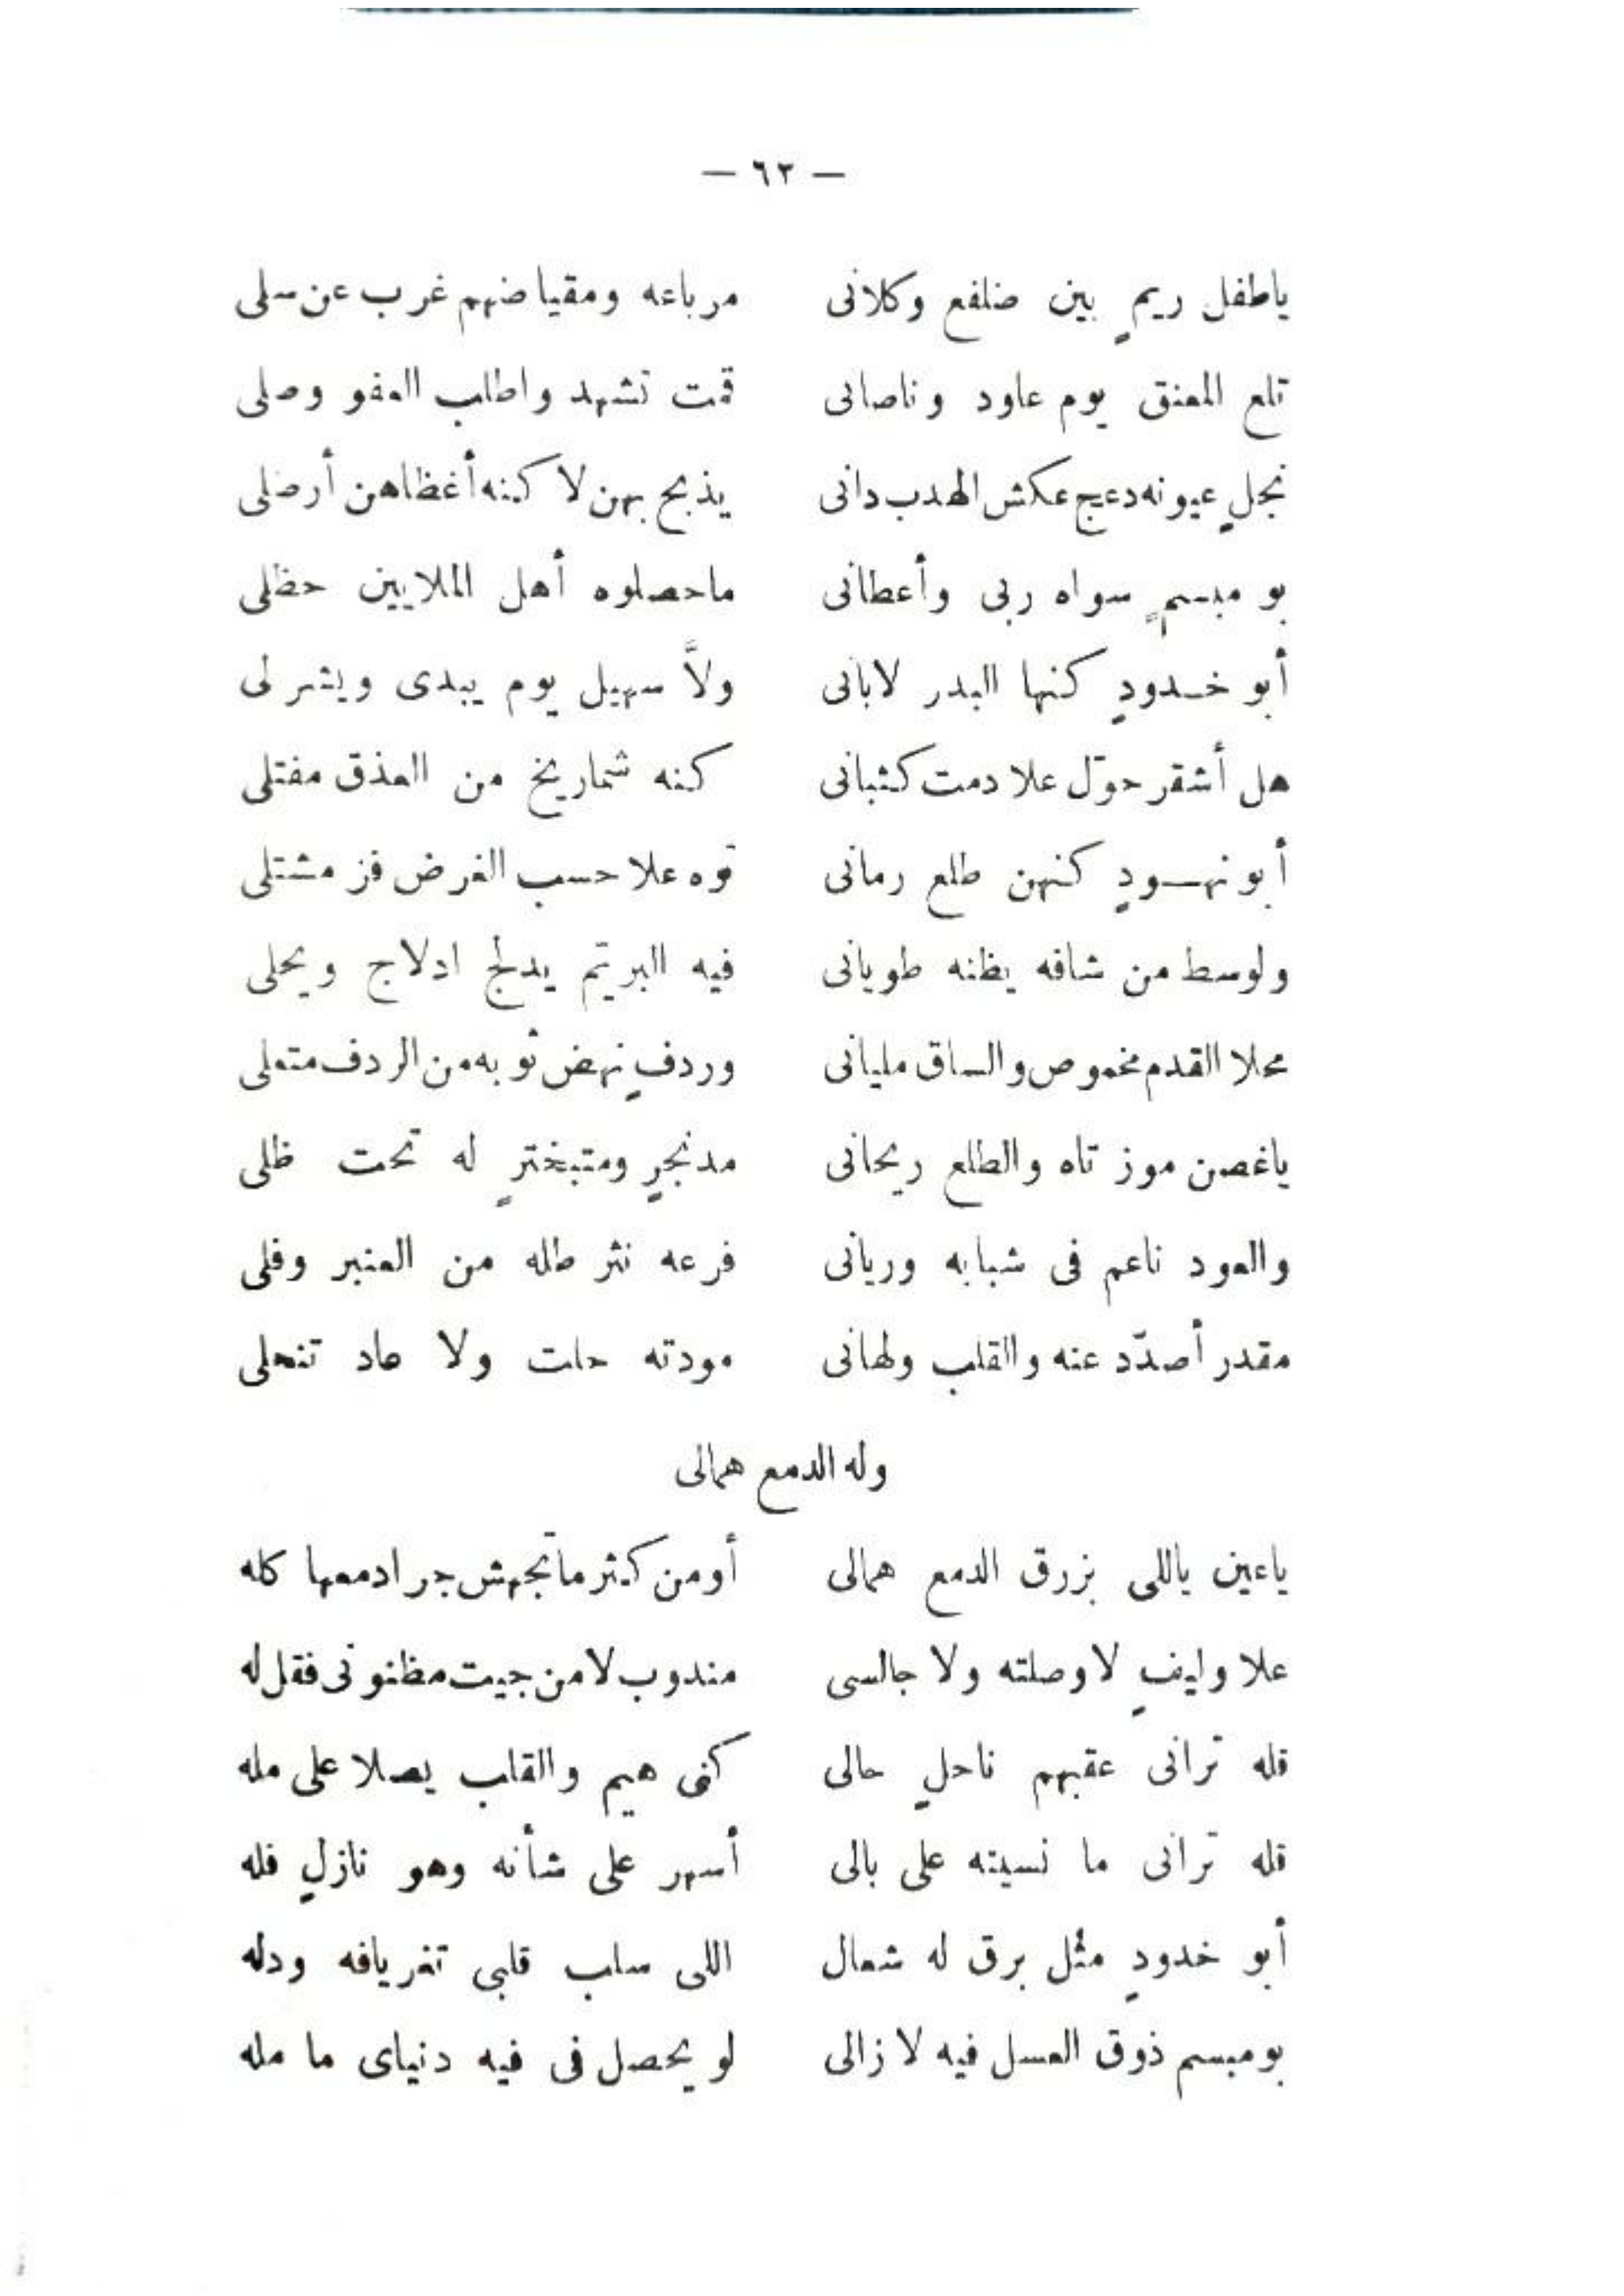 — ٦٢ —
ياطفل ريمٍ بين ضلفع وكلانى مرباعه ومقياضهم غرب عن سلى
تلع المعنق يوم عاود وناصانى قمت تشهد واطلب العفو وصلى
نجلٍ عيونه دعج عكش الهدب دانى يذبح بهن لا كنه أغظاهن أرضلى
بو مبسمٍ سواه ربى وأعطانى ماحصلوه أهل الملايين حظلى
أبو خدودٍ كنها البدر لابانى ولاَّ سهيل يوم يبدى وينشر لى
هل أشقر حوّل علا دمت كثبانى كنه شماريخ من العذق مفتلى
أبو نهودٍ كنهن طلع رمانى توه علا حسب الغرض فز مشتلى
ولوسط من شافه يظنه طويانى فيه البريتم يدلج ادلاج ويحلى
محلا القدم مخموص والساق مليانى وردفٍ نهض ثوبه من الردف متعلى
ياغصن موز تاه والطلع ريحانى مدنجرٍ ومتبخترٍ له تحت ظلى
والعود ناعم فى شبابه وريانى فرعه نثر طله من العنبر وفلى
مقدر أصدّد عنه والقلب ولهانى مودته حلت ولا عاد تنحلى
وله الدمع همالى
ياعين ياللى بزرق الدمع همالى أومن كثر ماتجهش جرا دمعها كله
علا وليفٍ لاوصلته ولا جالسى مندوب لامن جيت مظنونى فقل له
قله ترانى عقبهم ناحلٍ حالى كنى هيم والقلب يصلا على مله
قله ترانى ما نسيته على بالى أسهر على شأنه وهو نازلٍ فله
أبو خدودٍ مثل برق له شعال اللى سلب قلبى تغريافه ودله
بومبسم ذوق العسل فيه لا زالى لو يحصل فى فيه دنياى ما مله